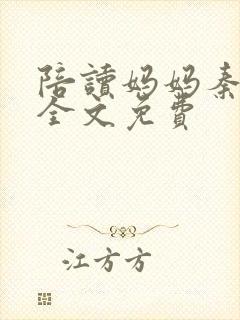 陪讀妈妈秦
全文免費
江方方